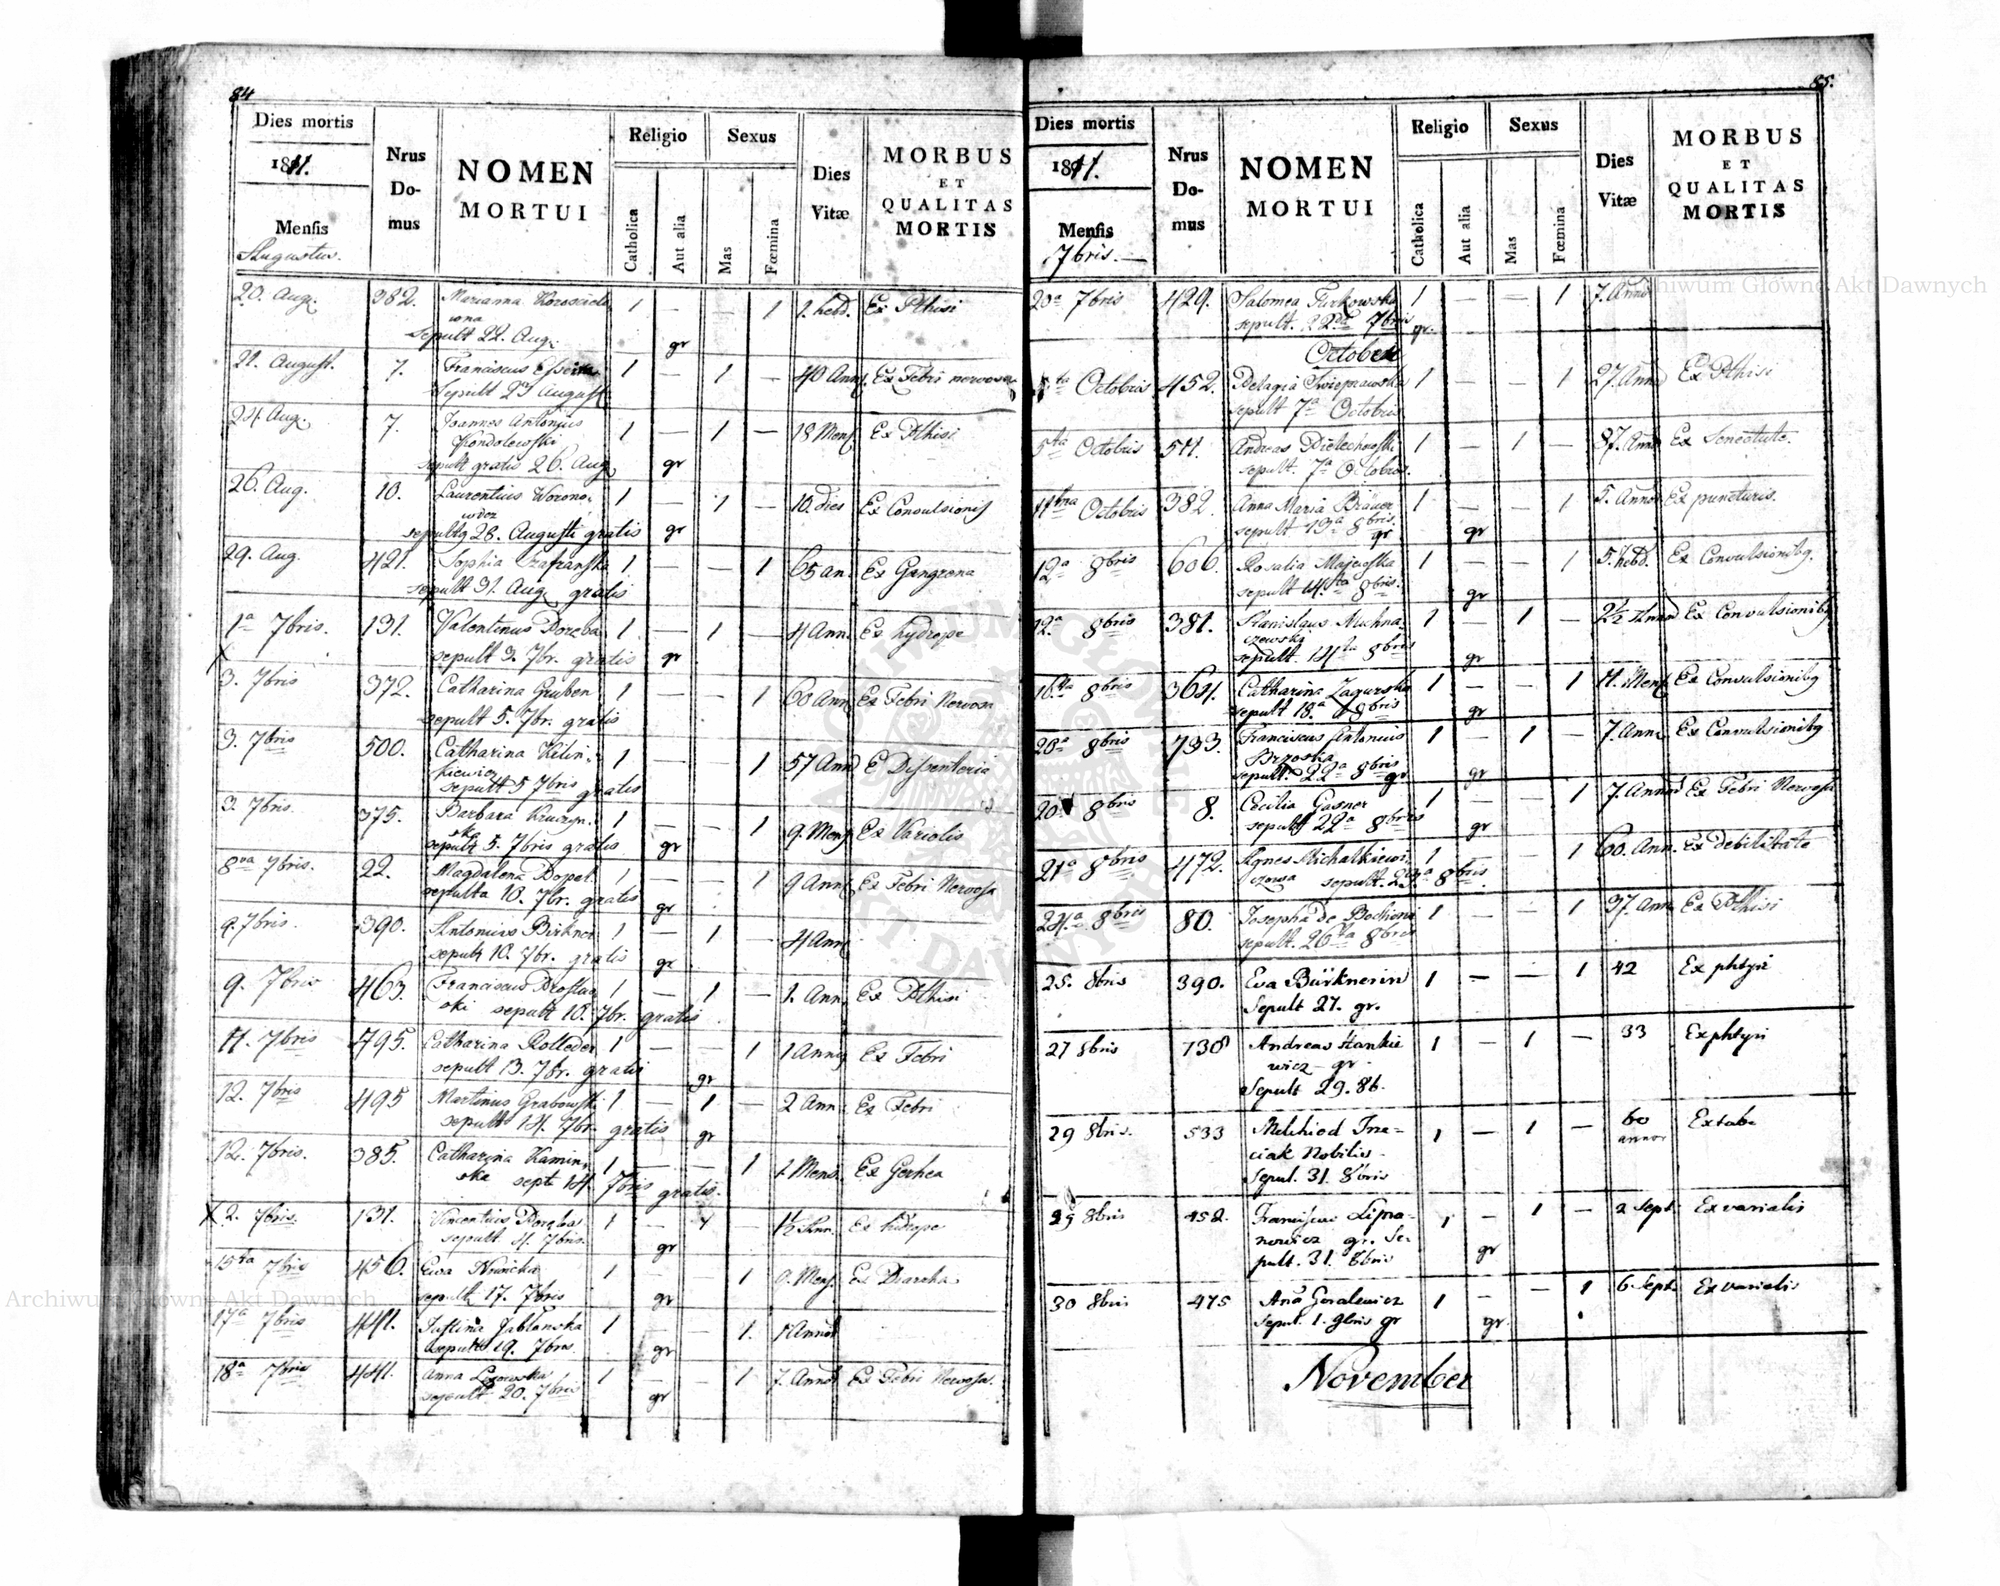 84
Dies mortis
1811.
Mensis
Augustus.
Nrus Do- mus
NOMEN
MORTUI
Religio
Catholica
Aut alia
Sexus
Mas
Fœmina
Dies Vitæ
MORBUS
ET
QUALITAS
MORTIS
20. Aug. 382. Marianna 1 — — 1 2. hebd. Ex Pthisi
sepult 22. Aug. gr
21. August. 7. Franciscus 1 — 1 — 40 Ann. Ex Febri nervosa
sepult 23 August
24. Aug. 7. Joannes Antonius 1 — 1 — 18 Mens. Ex Pthisi
Kondolewski
sepult gratis 26. Aug gr
26. Aug. 10. Laurentius Worono- 1 — 1 — 10. dies Ex Convulsionis
wicz
sepultq 28. Augusti gratis gr
29. Aug. 421. Sophia 1 — — 1 65 an. Ex Gangrena
sepult 31. Aug. gratis
1a 7bris. 131. Valentinus Doręba 1 — 1 — 4 Ann. Ex hydrope
sepult 3. 7br. gratis gr
3. 7bris 372. Catharina Gruben 1 — — 1 60 Ann. Ex Febri Nervosa
sepult 5. 7br. gratis
3. 7bris 500. Catharina Kilin- 1 — — 1 57 Ann Ex Disenteria
kiewicz
sepult 5 7bris gratis
3. 7bris. 375. Barbara Kruczyn- 1 — — 1 9. Mens. Ex Variolis
ska
sepult 5. 7bris gratis gr
8va 7bris. 22. Magdalena Popel. 1 — — 1 9 Ann. Ex Febri Nervosa
sepulta 10. 7br. gratis gr
9. 7bris. 390. Antonius Birkner 1 — 1 — 4 Ann.
sepult 10. 7br. gratis gr
9. 7bris 463. Franciscus 1 — 1 — 1. Ann. Ex Pthisi
ski sepult 10. 7br. gratis
11. 7bris 495. Catharina Kolleder 1 — — 1 1 Anng Ex Febri
sepult 13. 7br. gratis gr
12. 7bris 495 Martinus Grabowski 1 — 1 — 2 Ann. Ex Febri
sepult 14. 7br. gratis gr
12. 7bris. 385. Catharina Kamin- 1 — — 1 2. Mens.
ska sept 14. 7bris gratis.
X 2. 7bris. 131. Vincentius Doręba 1 — 1 — 1½ Ann. Ex hidrope
sepult 4. 7bris. gr
15ta 7bris 456. Ewa Nowicka 1 — — 1 9. Mens. Ex Diarrha
sepult 17. 7bris gr
17a 7bris 441. Justina Jablonska 1 — — 1. 1 Annor
sepult 19. 7bris. gr
18a 7bris 441. Anna 1 — — 1 7. Annor Ex Febri Nervosa.
sepult 20. 7bris gr
85.
Dies mortis
1811.
Mensis
7bris.
Nrus Do- mus
NOMEN
MORTUI
Religio
Catholica
Aut alia
Sexus
Mas
Fœmina
Dies Vitæ
MORBUS
ET
QUALITAS
MORTIS
20a 7bris 429. Salomea Turkowska 1 — — 1 7. Anno
sepult. 22da 7bris gr.
October
5ta Octobris 452. Pelagia Swieprawska 1 — — 1 27. Anno Ex Pthisi
sepult 7a Octobris
5ta Octobris 511. Andreas 1 — 1 — 87. Anno Ex Senectute.
sepult. 7a Octobris.
Octobris 382. Anna Maria Bräuer 1 — — 1 5. Annor Ex puncturis.
sepult 13a 8bris. gr gr
12a 8bris 606. Rosalia Majewska 1 — — 1 5. hebd. Ex Convulsionibq.
sepult 14ta 8bris. gr
12a 8bris 381. Stanislaus Muhna- 1 — 1 — 2½ Annor Ex Convulsionibq
czewski
sepult. 14ta 8bris gr
16ta 8bris 364. Catharina Zagurska 1 — — 1 11. Mens. Ex Convulsionibq
sepult 18a 8bris gr
20a 8bris 733. Franciscus Antonius 1 — 1 — 7. Ann. Ex Convulsionibq
Brzoska
sepult. 22a 8bris gr gr
20 8bris 8. Cecilia Gasner 1 — — 1 7. Annor Ex Febri Nervosa
sepult 22a 8bris gr
21a 8bris 472. Agnes Michalkiewi- 1 — — 1 60. Ann. Ex debilitate
czowa sepult. 23a 8bris.
24.a 8bris 80. Josepha de Bochynia 1 — — 1 37. Ann. Ex Pthisi
sepult. 26ta 8bris
25. 8bris 390. Eva Bürknerin 1 — — 1 42 Ex phtysi
Sepult 27. gr.
27 8bris 738 Andreas Stankie 1 — 1 — 33 Ex phtysi
wicz gr
Sepult 29. 8b.
29 8bris. 533 Melchiod 1 — 1 — 60 Ex tabe
ciak Nobilis annor
Sepul. 31. 8bris
29 8bris 452. Franciscus Lipra- 1 — 1 — 2 Sept. Ex variolis
nowicz gr. Se- gr
pult. 31. 8bris
30 8bris 475 Aña Goralewicz 1 — — 1 6. Sept. Ex variolis
Sepul. 1. 9bris gr gr
November
Archiwum Główne Akt Dawnych
Archiwum Główne Akt Dawnych
ARCHIWUM GŁÓWNE AKT DAWNYCH